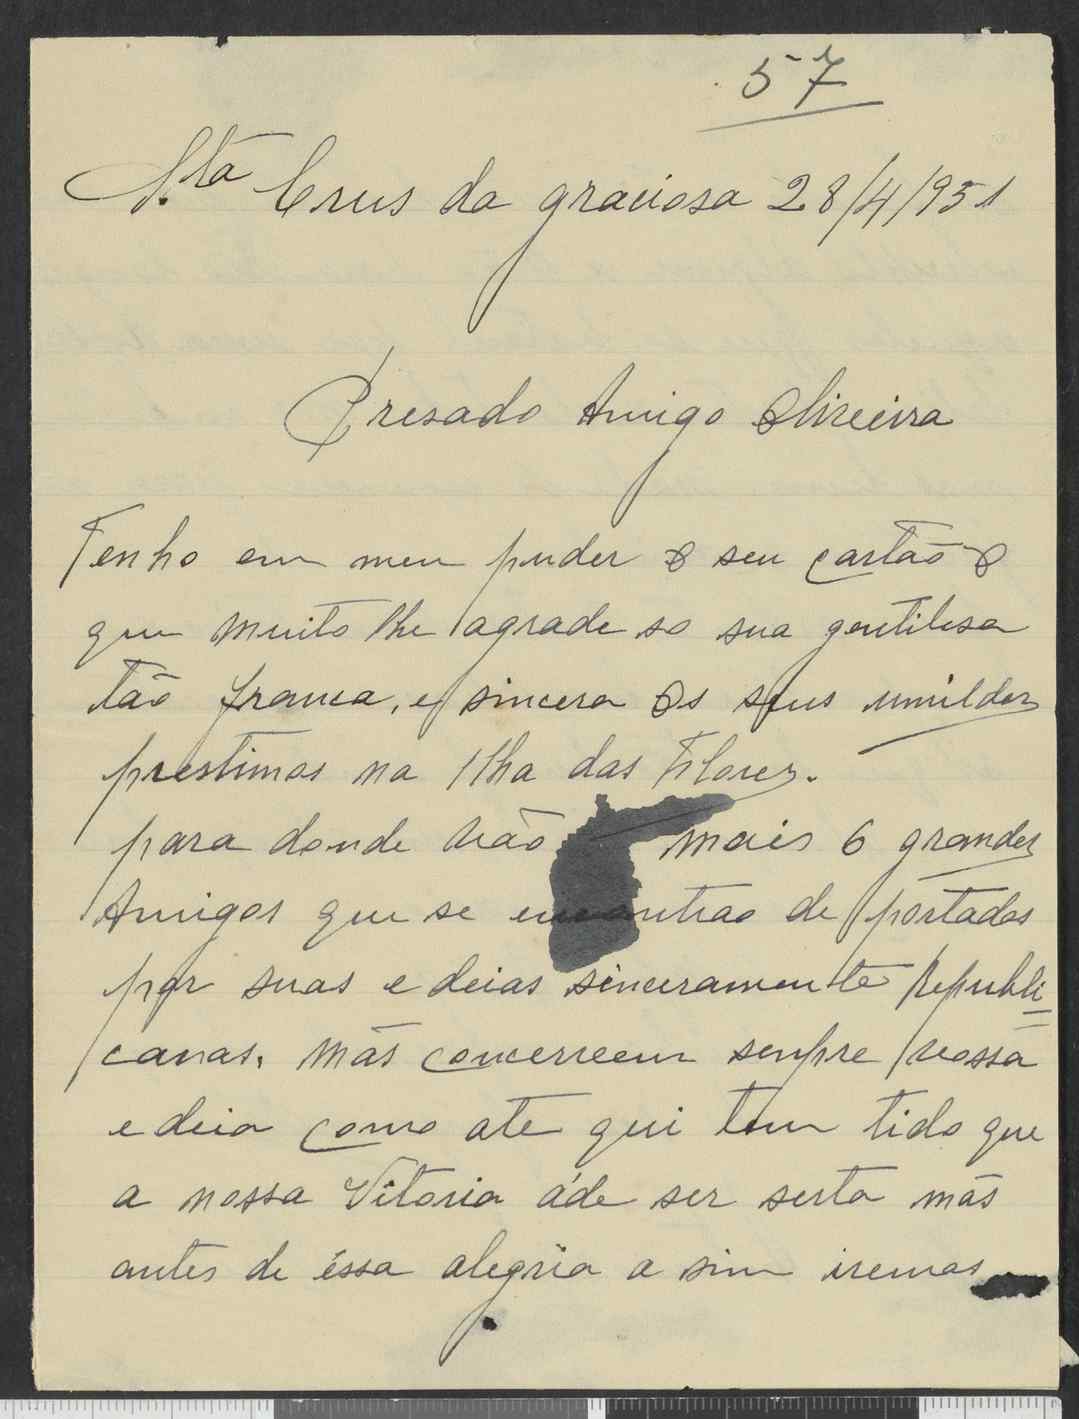 57
S.ta Crus da graciosa 28/4/951
Presado Amigo Olireira
Tenho em meu puder o seu cartão o
que muito lhe agrade so sua gentilesa
tão franca, e sincera os seus umildes
prestimos na Ilha das Flores.
para donde vão mais 6 grandes
Amigos que se encontrao de portados
por suas e deias sinceramente Republi
canas. mãs concerveem senpre vossa
e deia como ate qui tem tido que
a nossa Vitoria áde ser serta mãs
antes de éssa alegria a sim iremos